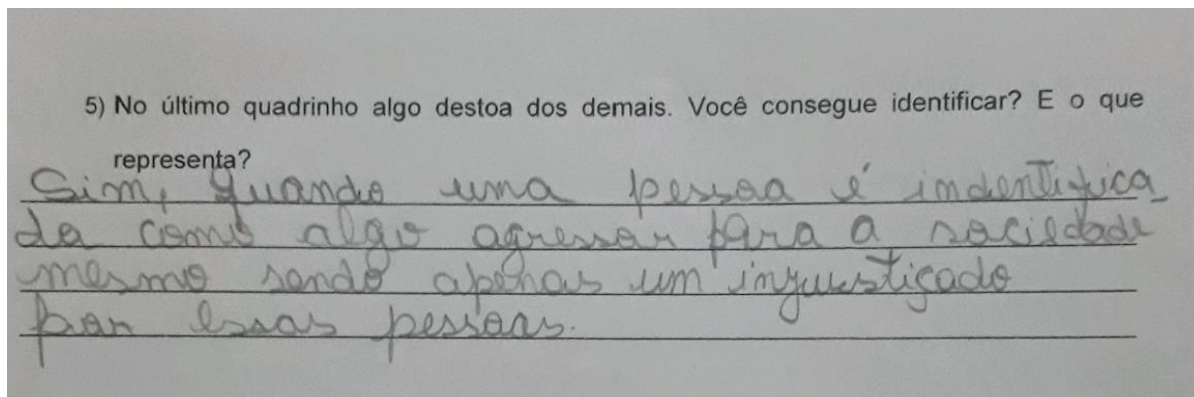 5) No último quadrinho algo destoa dos demais. Você consegue identificar? E o que
representa?
Sim, quando uma pessoa é indentifica_
da como algo agressor para a sociedade
mesmo sendo apenas um injuestiçado
por essas pessoas.